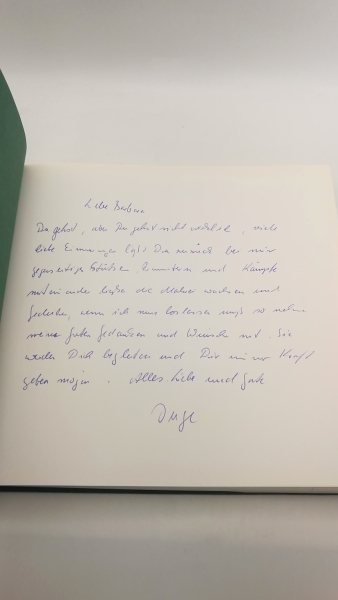 Liebe Barbara
Du gehst, aber Du gehst nicht wirklich, viele
liebe Erinnerungen läßt Du zurück bei mir
gegenseitiges Stützen, und Kämpfe
miteinander ließen die wachsen und
gedeihen, wenn ich nun loslassen muß so nehme
meine guten Gedanken und Wünsche mit. Sie
werden Dich begleiten und Dir immer Kraft
geben mögen. Alles Liebe und Gute